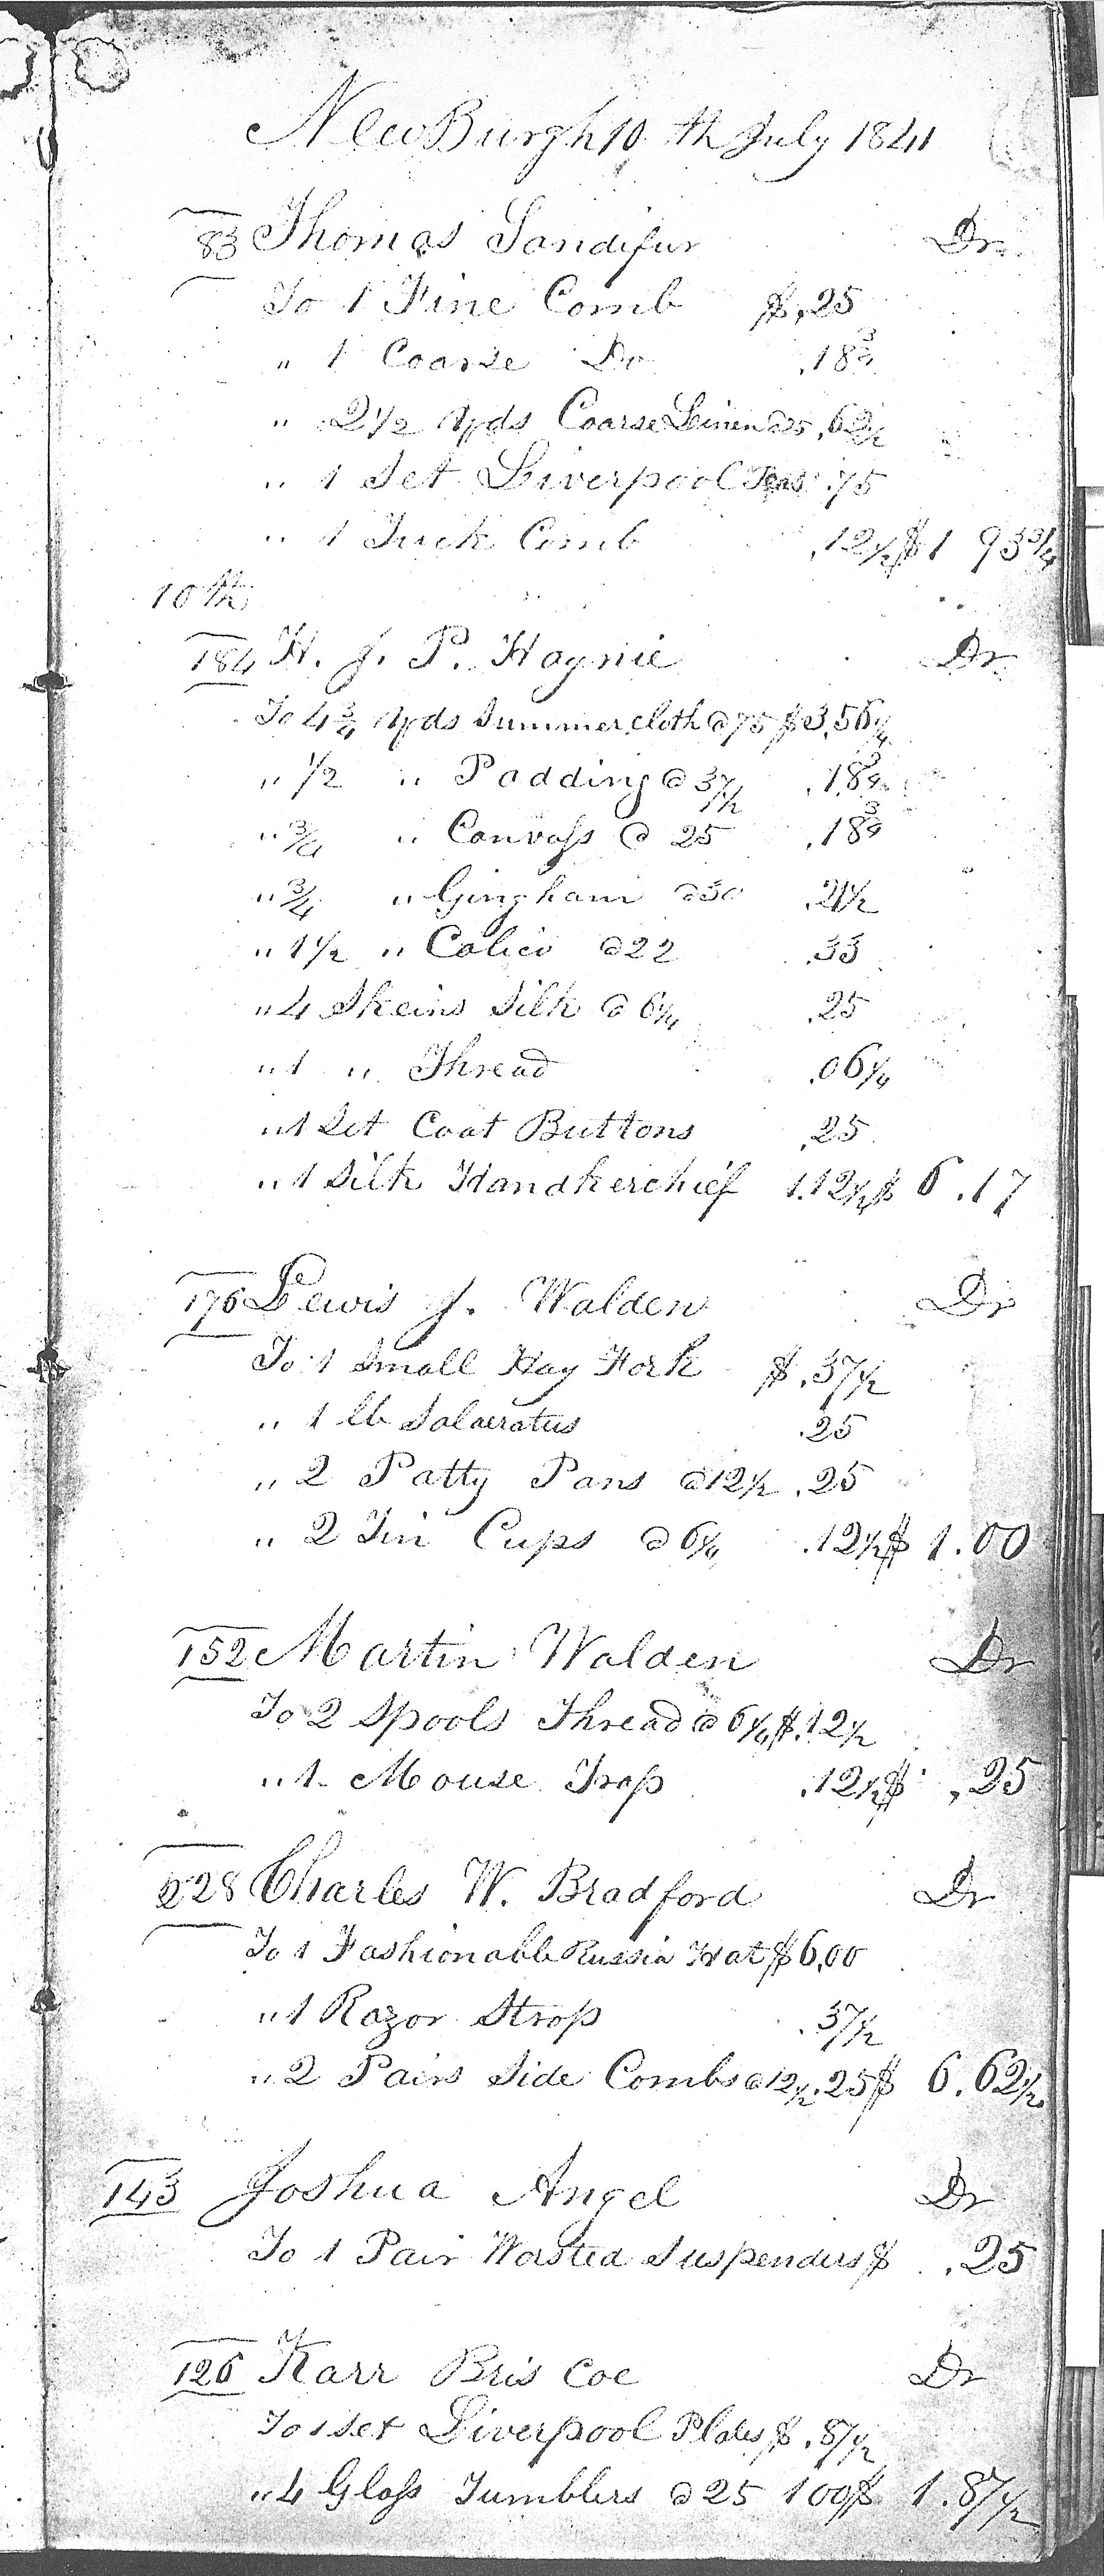 NewBurgh 10th July 1841
83 Thomas Sandifur Dr.
To 1 Fine Comb $.25
" 1 Coarse Do .18 3/4
" 2 1/2 Yds Coarse Linen @ 25 .62 1/2
" 1 Set Liverpool Teas .75
" 1 Tuck Comb .12 1/2 $1 93 3/4
10th
184 H. J. P. Haynie Dr
To 4 3/4 Yds Summer Cloth @ 75 $3.56 1/4
" 1/2 " Padding @ 37 1/2 .18 3/4
" 3/4 " Canvass @ 25 .18 3/4
" 3/4 " Gingham @
" 1 1/2 " Calico @ 22 .33
" 4 Skeins Silk @ 6 1/4 .25
" 1 " Thread .06 1/4
" 1 Set Coat Buttons .25
" 1 Silk Handkerchief 1.12 1/2 $ 6.17
176 Lewis J. Walden Dr
To 1 Small Hay Fork $.37 1/2
" 1 lb Salaeratus .25
" 2 Patty Pans @ 12 1/2 .25
" 2 Tin Cups @ 6 1/4 .12 1/2 $ 1.00
152 Martin Walden Dr
To 2 Spools Thread @ 6 1/4 $.12 1/2
" 1 Mouse Trap .12 1/2 $ .25
228 Charles W. Bradford Dr
To 1 Fashionable Russia Hat $6.00
" 1 Razor Strop .37 1/2
" 2 Pairs Side Combs @ 12 1/2 .25 $ 6.62 1/2
143 Joshua Angel Dr
To 1 Pair Worsted Suspenders $ .25
126 Karr Bris Coe Dr
To 1 Set Liverpool Plates $ .87 1/2
" 4 Glass Tumblers @ 25 1 00 $ 1.87 1/2